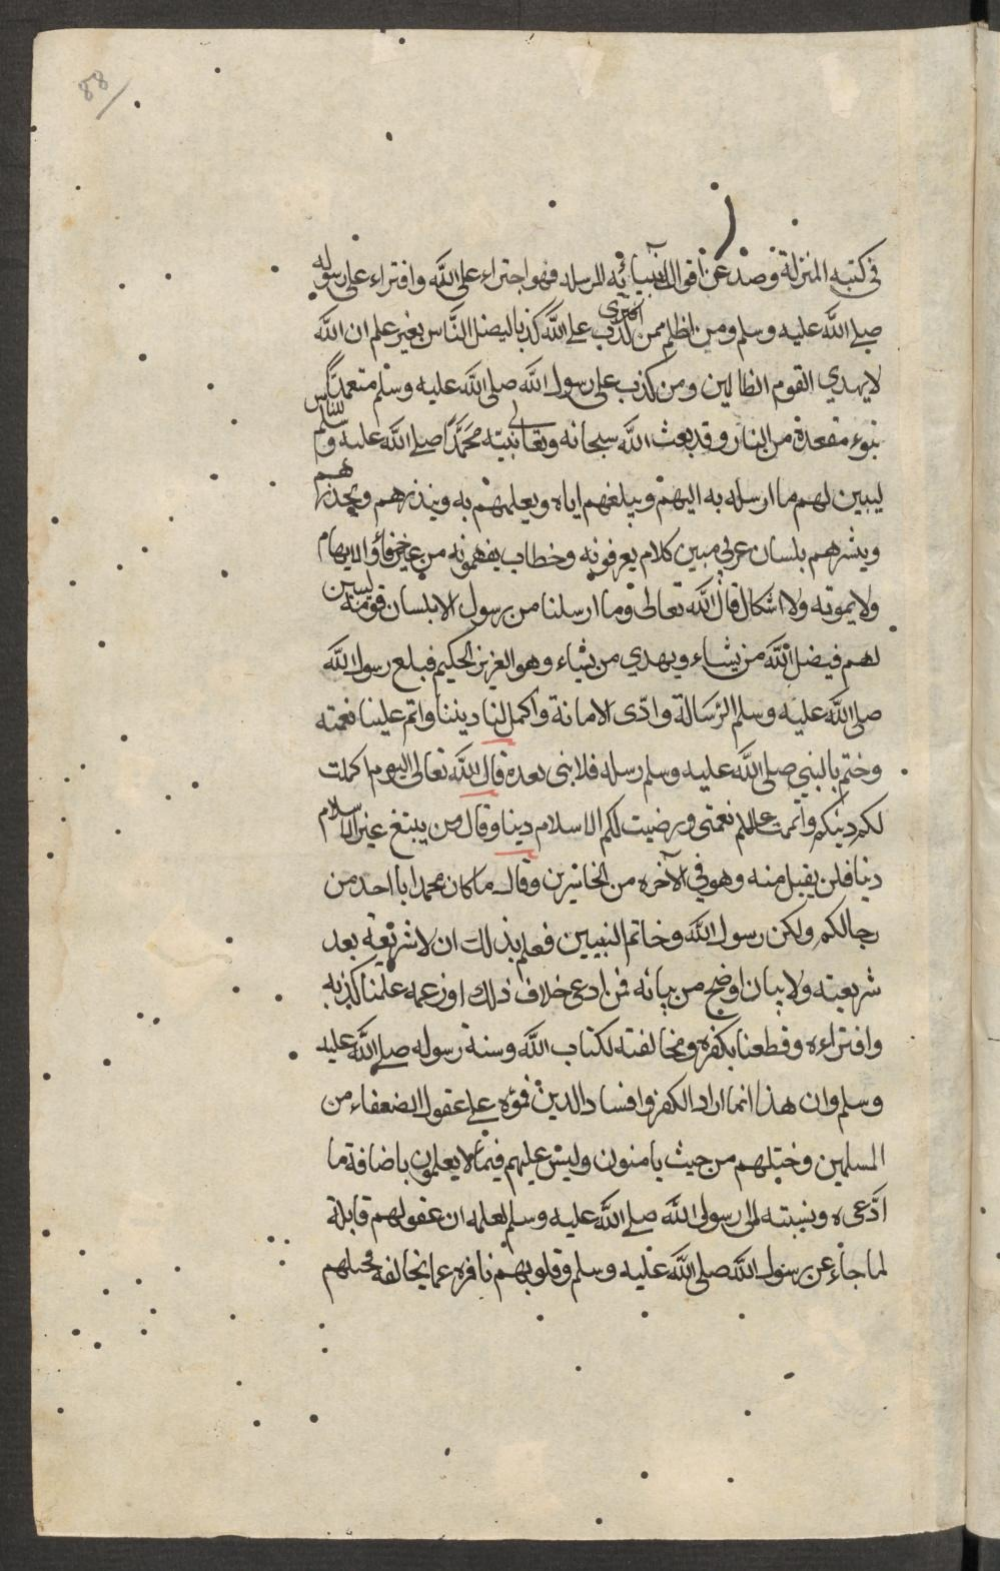 88
في كتبه المنزلة وصد عن اقوال انبيائه المرسله فهو اجتراء على الله وافتراء على رسوله
صلى الله عليه وسلم ومن اظلم ممن افترى كذب على الله كذبا ليضل الناس بغير علم ان الله
لا يهدي القوم الظالمين ومن كذب على رسول الله صلى الله عليه وسلم متعمدا
تبوء مقعدة من النار وقد بعث الله سبحانه وتعالى نبيه محمدا صلى الله عليه وسلم للناس
ليبين لهم ما ارسله به اليهم ويبلغهم اياه ويعلمهم به وينذرهم ويحذرهم
ويبشرهم بلسان عربي مبين كلام يعرفونه وخطاب يفهمونه من غير خفاء ولا ايهام
ولا يموته ولا اشكال قال الله تعالى وما ارسلنا من رسول الا بلسان قومه ليبين
لهم فيضل الله من يشاء ويهدي من يشاء وهو العزيز الحكيم فبلغ رسول الله
صلى الله عليه وسلم الرسالة وادى الامانة واكمل لنا ديننا واتم علينا نعمته
وختم بالنبي صلى الله عليه وسلم رسله فلا نبى بعده قال الله تعالى اليوم اكملت
لكم دينكم واتممت عليكم نعمتى ورضيت لكم الاسلام دينا وقال ومن يبتغ غير الاسلام
دينا فلن يقبل منه وهو في الآخره من الخاسرين وقال ما كان محمد ابا احد من
رجالكم ولكن رسول الله وخاتم النبيين فعلم بذلك ان لا شريعة بعد
شريعته ولا بيان اوضح من بيانه فمن ادعى خلاف ذلك او زعمه علمنا كذبه
وافتراءه وقطعنا بكفره ومخالفته لكتاب الله وسنة رسوله صلى الله عليه
وسلم وان هذا انما اراد الكفر وافساد الدين فموه على عقول الضعفاء من
المسلمين وختلهم من حيث يامنون وليس عليهم فيما لا يعلمون باضافة ما
ادعى ه ونسبته الى رسول الله صلى الله عليه وسلم لعلمه ان عقولهم قابلة
لما جاء عن رسول الله صلى الله عليه وسلم وقلوبهم نافره عما يخالفه فختلهم